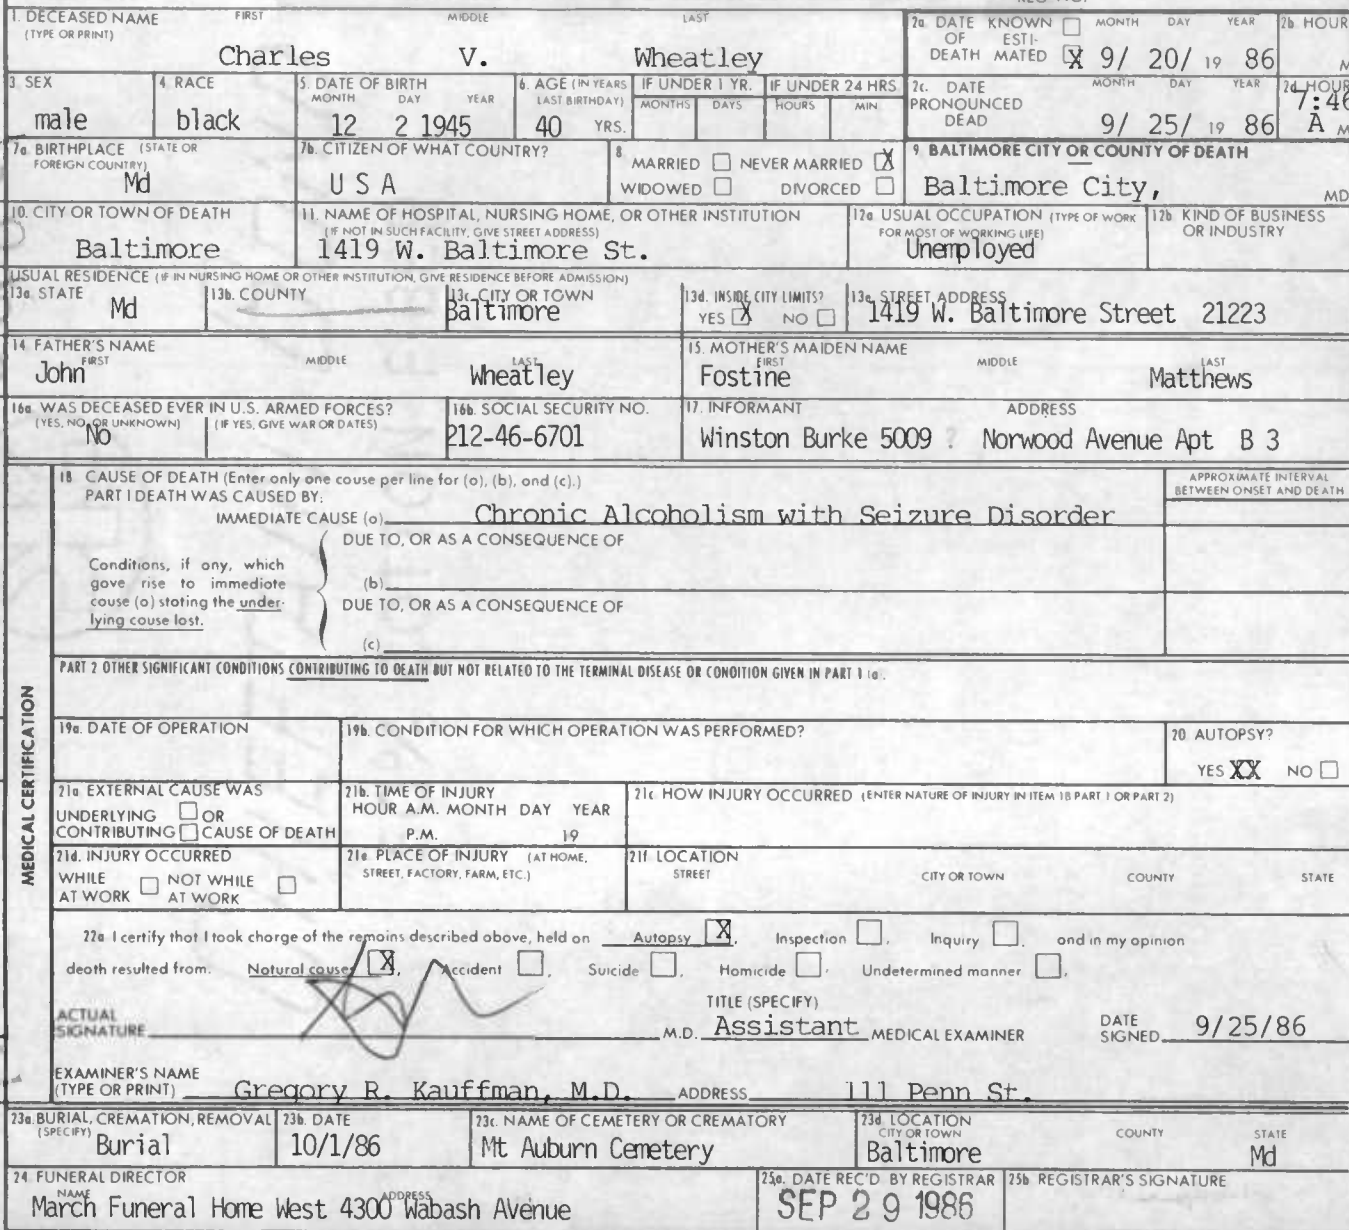 1. DECEASED NAME FIRST MIDDLE LAST
(TYPE OR PRINT)
Charles V. Wheatley
2a DATE KNOWN ☐ MONTH DAY YEAR
OF ESTI-
DEATH MATED ☒ 9/ 20/ 19 86
2b HOUR
M
3 SEX
male
4 RACE
black
5. DATE OF BIRTH
MONTH DAY YEAR
12 2 1945
6. AGE (IN YEARS
LAST BIRTHDAY)
40 YRS.
IF UNDER 1 YR.
MONTHS DAYS
IF UNDER 24 HRS
HOURS MIN.
2c. DATE MONTH DAY YEAR
PRONOUNCED
DEAD 9/ 25/ 19 86
2d HOUR
7:46
A M
7a BIRTHPLACE (STATE OR
FOREIGN COUNTRY)
Md
7b. CITIZEN OF WHAT COUNTRY?
U S A
8
MARRIED ☐ NEVER MARRIED ☒
WIDOWED ☐ DIVORCED ☐
9 BALTIMORE CITY OR COUNTY OF DEATH
Baltimore City,
MD
10. CITY OR TOWN OF DEATH
Baltimore
11. NAME OF HOSPITAL, NURSING HOME, OR OTHER INSTITUTION
(IF NOT IN SUCH FACILITY, GIVE STREET ADDRESS)
1419 W. Baltimore St.
12a USUAL OCCUPATION (TYPE OF WORK
FOR MOST OF WORKING LIFE)
Unemployed
12b. KIND OF BUSINESS
OR INDUSTRY
USUAL RESIDENCE (IF IN NURSING HOME OR OTHER INSTITUTION, GIVE RESIDENCE BEFORE ADMISSION)
13a. STATE
Md
13b. COUNTY
13c. CITY OR TOWN
Baltimore
13d. INSIDE CITY LIMITS?
YES ☒ NO ☐
13e. STREET ADDRESS
1419 W. Baltimore Street 21223
14 FATHER'S NAME
FIRST MIDDLE LAST
John Wheatley
15. MOTHER'S MAIDEN NAME
FIRST MIDDLE LAST
Fostine Matthews
16a WAS DECEASED EVER IN U.S. ARMED FORCES?
(YES, NO, OR UNKNOWN) (IF YES, GIVE WAR OR DATES)
No
16b. SOCIAL SECURITY NO.
212-46-6701
17. INFORMANT ADDRESS
Winston Burke 5009 Norwood Avenue Apt B 3
MEDICAL CERTIFICATION
18 CAUSE OF DEATH (Enter only one cause per line for (a), (b), and (c).)
PART I DEATH WAS CAUSED BY:
IMMEDIATE CAUSE (a) Chronic Alcoholism with Seizure Disorder
APPROXIMATE INTERVAL
BETWEEN ONSET AND DEATH
DUE TO, OR AS A CONSEQUENCE OF
Conditions, if any, which
gave rise to immediate
cause (a) stating the under-
lying cause last.
(b)
DUE TO, OR AS A CONSEQUENCE OF
(c)
PART 2 OTHER SIGNIFICANT CONDITIONS CONTRIBUTING TO DEATH BUT NOT RELATED TO THE TERMINAL DISEASE OR CONDITION GIVEN IN PART 1 (a).
19a. DATE OF OPERATION
19b. CONDITION FOR WHICH OPERATION WAS PERFORMED?
20 AUTOPSY?
YES XX NO ☐
21a EXTERNAL CAUSE WAS
UNDERLYING ☐ OR
CONTRIBUTING ☐ CAUSE OF DEATH
21b. TIME OF INJURY
HOUR A.M. MONTH DAY YEAR
P.M. 19
21c HOW INJURY OCCURRED (ENTER NATURE OF INJURY IN ITEM 18 PART 1 OR PART 2)
21d. INJURY OCCURRED
WHILE ☐ NOT WHILE ☐
AT WORK AT WORK
21e PLACE OF INJURY (AT HOME,
STREET, FACTORY, FARM, ETC.)
21f LOCATION
STREET CITY OR TOWN COUNTY STATE
22a I certify that I took charge of the remains described above, held on Autopsy ☒, Inspection ☐, Inquiry ☐, and in my opinion
death resulted from. Natural causes ☒, Accident ☐, Suicide ☐, Homicide ☐, Undetermined manner ☐,
ACTUAL
SIGNATURE
TITLE (SPECIFY)
M.D. Assistant MEDICAL EXAMINER
DATE
SIGNED 9/25/86
EXAMINER'S NAME
(TYPE OR PRINT) Gregory R. Kauffman, M.D. ADDRESS 111 Penn St.
23a. BURIAL, CREMATION, REMOVAL
(SPECIFY)
Burial
23b. DATE
10/1/86
23c. NAME OF CEMETERY OR CREMATORY
Mt Auburn Cemetery
23d LOCATION
CITY OR TOWN COUNTY STATE
Baltimore Md
24 FUNERAL DIRECTOR
NAME ADDRESS
March Funeral Home West 4300 Wabash Avenue
25a. DATE REC'D BY REGISTRAR
SEP 29 1986
25b REGISTRAR'S SIGNATURE